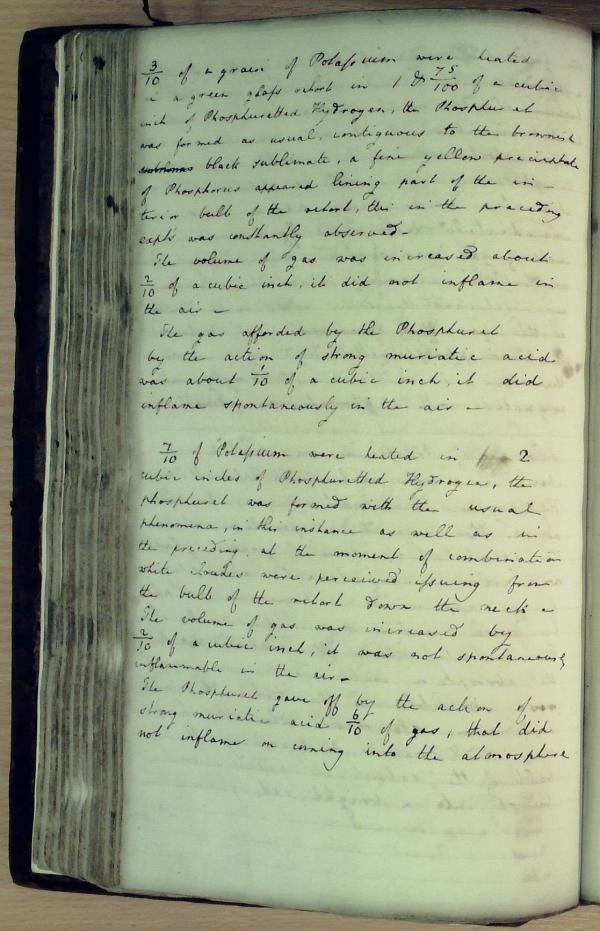 3/10 of a grain of Potassium were heated
in a green glass retort in 1 & 75/100 of a cubic
inch of Phosphuretted Hydrogen, the Phosphuret
was formed as usual, contiguous to the brownish
black sublimate, a fine yellow precipitate
of Phosphorus appeared lining part of the in-
terior bulb of the retort, this in the preceding
expts was constantly observed -
The volume of gas was increased about
2/10 of a cubic inch, it did not inflame in
the air -
The gas afforded by the Phosphuret
by the action of strong muriatic acid
was about 1/10 of a cubic inch, it did
inflame spontaneously in the air -
7/10 of Potassium were heated in 2
cubic inches of Phosphuretted Hydrogen, the
phosphuret was formed with the usual
phenomena, in this instance as well as in
the preceding, at the moment of combination
white clouds were perceived issuing from
the bulb of the retort down the neck -
The volume of gas was increased by
2/10 of a cubic inch, it was not spontaneously
inflammable in the air -
The Phosphuret gave off by the action of
strong muriatic acid 6/10 of gas, that did
not inflame on coming into the atmosphere